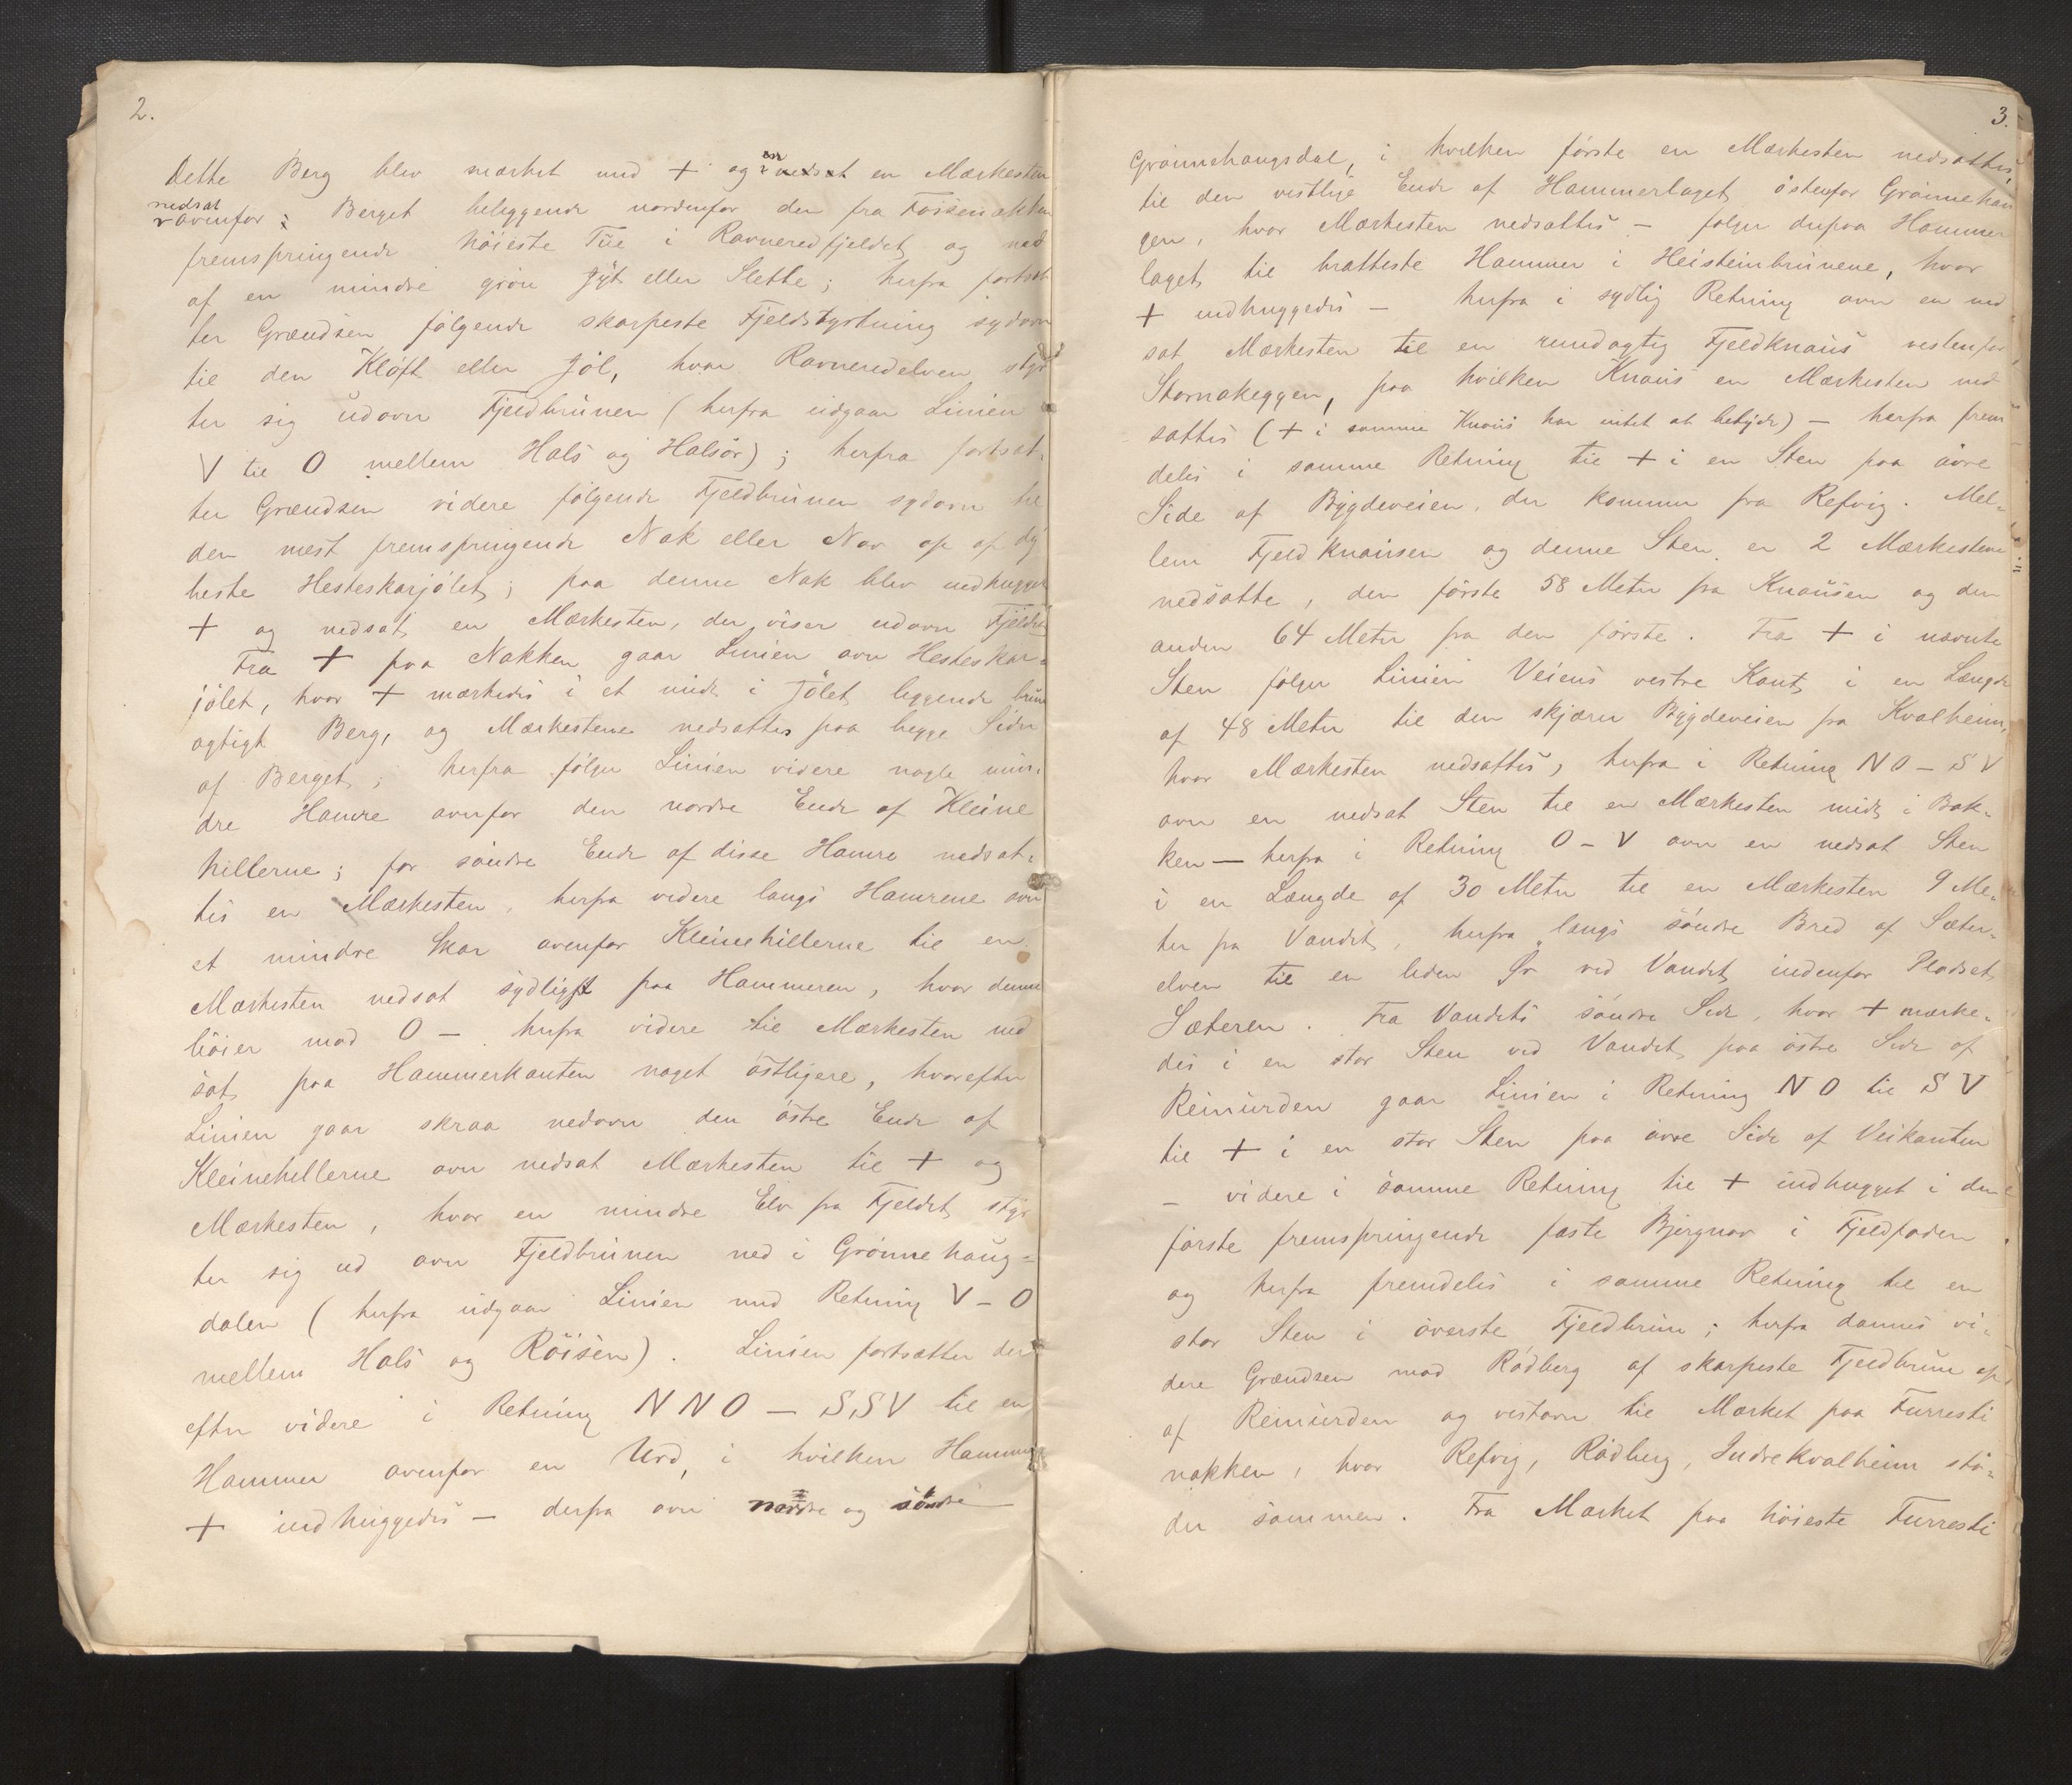 2.
Dette Berg blev mærket med + og er en Mærkesten
nedsat ovenfor Berget beliggende nordenfor den fra
fremspringende höieste Tue i Ravneredfjeldet og ned
af en mindre grön Jyt eller Slette; herfra fortsæt
ter Grændsen fölgende skarpeste Fjeldstyrtning sydover
til den Klöft eller Jöl, hvor Ravneredelven styr
ter sig udover Fjeldbrunen (herfra udgaar Linien
V til O mellem Hals og Halsör); herfra fortsæt-
ter Grændsen videre fölgende Fjeldbrunen sydover til
den mest fremspringende Nak eller Nov op af dy
beste Hesteskarjölet; paa denne Nak blev indhugget
+ og nedsat en Mærkesten, der viser udover Fjeldet
Fra + paa Nakken gaar Linien over Hesteskar-
jölet, hvor + mærkedes i et midt i Jölet liggende brun
agtigt Berg, og Mærkestene nedsattes paa begge Sider
af Berget; herfra fölger Linien videre nogle min-
dre Hamre ovenfor den nordre Ende af Kleine
hillerne; for söndre Ende af disse Hamre nedsat-
tes en Mærkesten, herfra videre langs Hamrene over
et mindre Skar ovenfor Kleinehillerne til en
Mærkesten nedsat sydligst paa Hammeren, hvor denne
böier mod O — herfra videre til Mærkesten ned
sat paa Hammerkanten noget östligere, hvorefter
Linien gaar skraa nedover den östre Ende af
Kleinehillerne over nedsat Mærkesten til + og
Mærkesten, hvor en mindre Elv fra Fjeldet styr
ter sig ud over Fjeldbrunen ned i Grönnehaug-
dalen (herfra udgaar Linien med Retning V – O
mellem Hals og Röisen). Linien fortsætter der
efter videre i Retning NNO — SSV til en
Hammer ovenfor en Urd, i hvilken Hammer
+ indhuggedes — derfra over nordre og söndre
3.
Grönnehaugsdal, i hvilken förste en Mærkesten nedsattes,
til den vestlige Ende af Hammerlaget östenfor Grönnehau
gen, hvor Mærkesten nedsattes — fölger derpaa Hammer
laget til bratteste Hammer i Heisteinbrunene, hvor
+ indhuggedes — herfra i sydlig Retning over en ned
sat Mærkesten til en rundagtig Fjeldknaus vestenfor
Stornakeggen, paa hvilken Knaus en Mærkesten ned
sattes (+ i samme Knaus har intet at betyde) — herfra frem
deles i samme Retning til + i en Sten paa övre
Side af Bygdeveien, der kommer fra Refvig. Mel-
lem Fjeldknausen og denne Sten er 2 Mærkestene
nedsatte, den förste 58 Meter fra Knausen og den
anden 64 Meter fra den förste. Fra + i nævnte
Sten fölger Linien Veiens vestre Kant i en Længde
af 48 Meter til den skjærer Bygdeveien fra Kvalheim,
hvor Mærkesten nedsattes, herfra i Retning NO – SV
over en nedsat Sten til en Mærkesten midt i Bak-
ken — herfra i Retning O – V over en nedsat Sten
i en Længde af 30 Meter til en Mærkesten 9 Me-
ter fra Vandet, herfra langs söndre Bred af Sæter-
elven til en liden Ör ved Vandet indenfor Pladset
Sæteren. Fra Vandets söndre Side, hvor + mærke-
des i en stor Sten ved Vandet paa östre Side af
Reinurden gaar Linien i Retning NO til SV
til + i en stor Sten paa övre Side af Veikanten
– videre i samme Retning til + indhugget i den
förste fremspringende faste Bjergnov i Fjeldfoden
og herfra fremdeles i samme Retning til en
stor Sten i överste Fjeldbrun; herfra dannes vi-
dere Grændsen mod Rödberg af skarpeste Fjeldbrun op
af Reinurden og vestover til Mærket paa Furresti
nakken, hvor Refvig, Rödberg, Indrekvalheim stö-
der sammen. Fra Mærket paa höieste Furresti